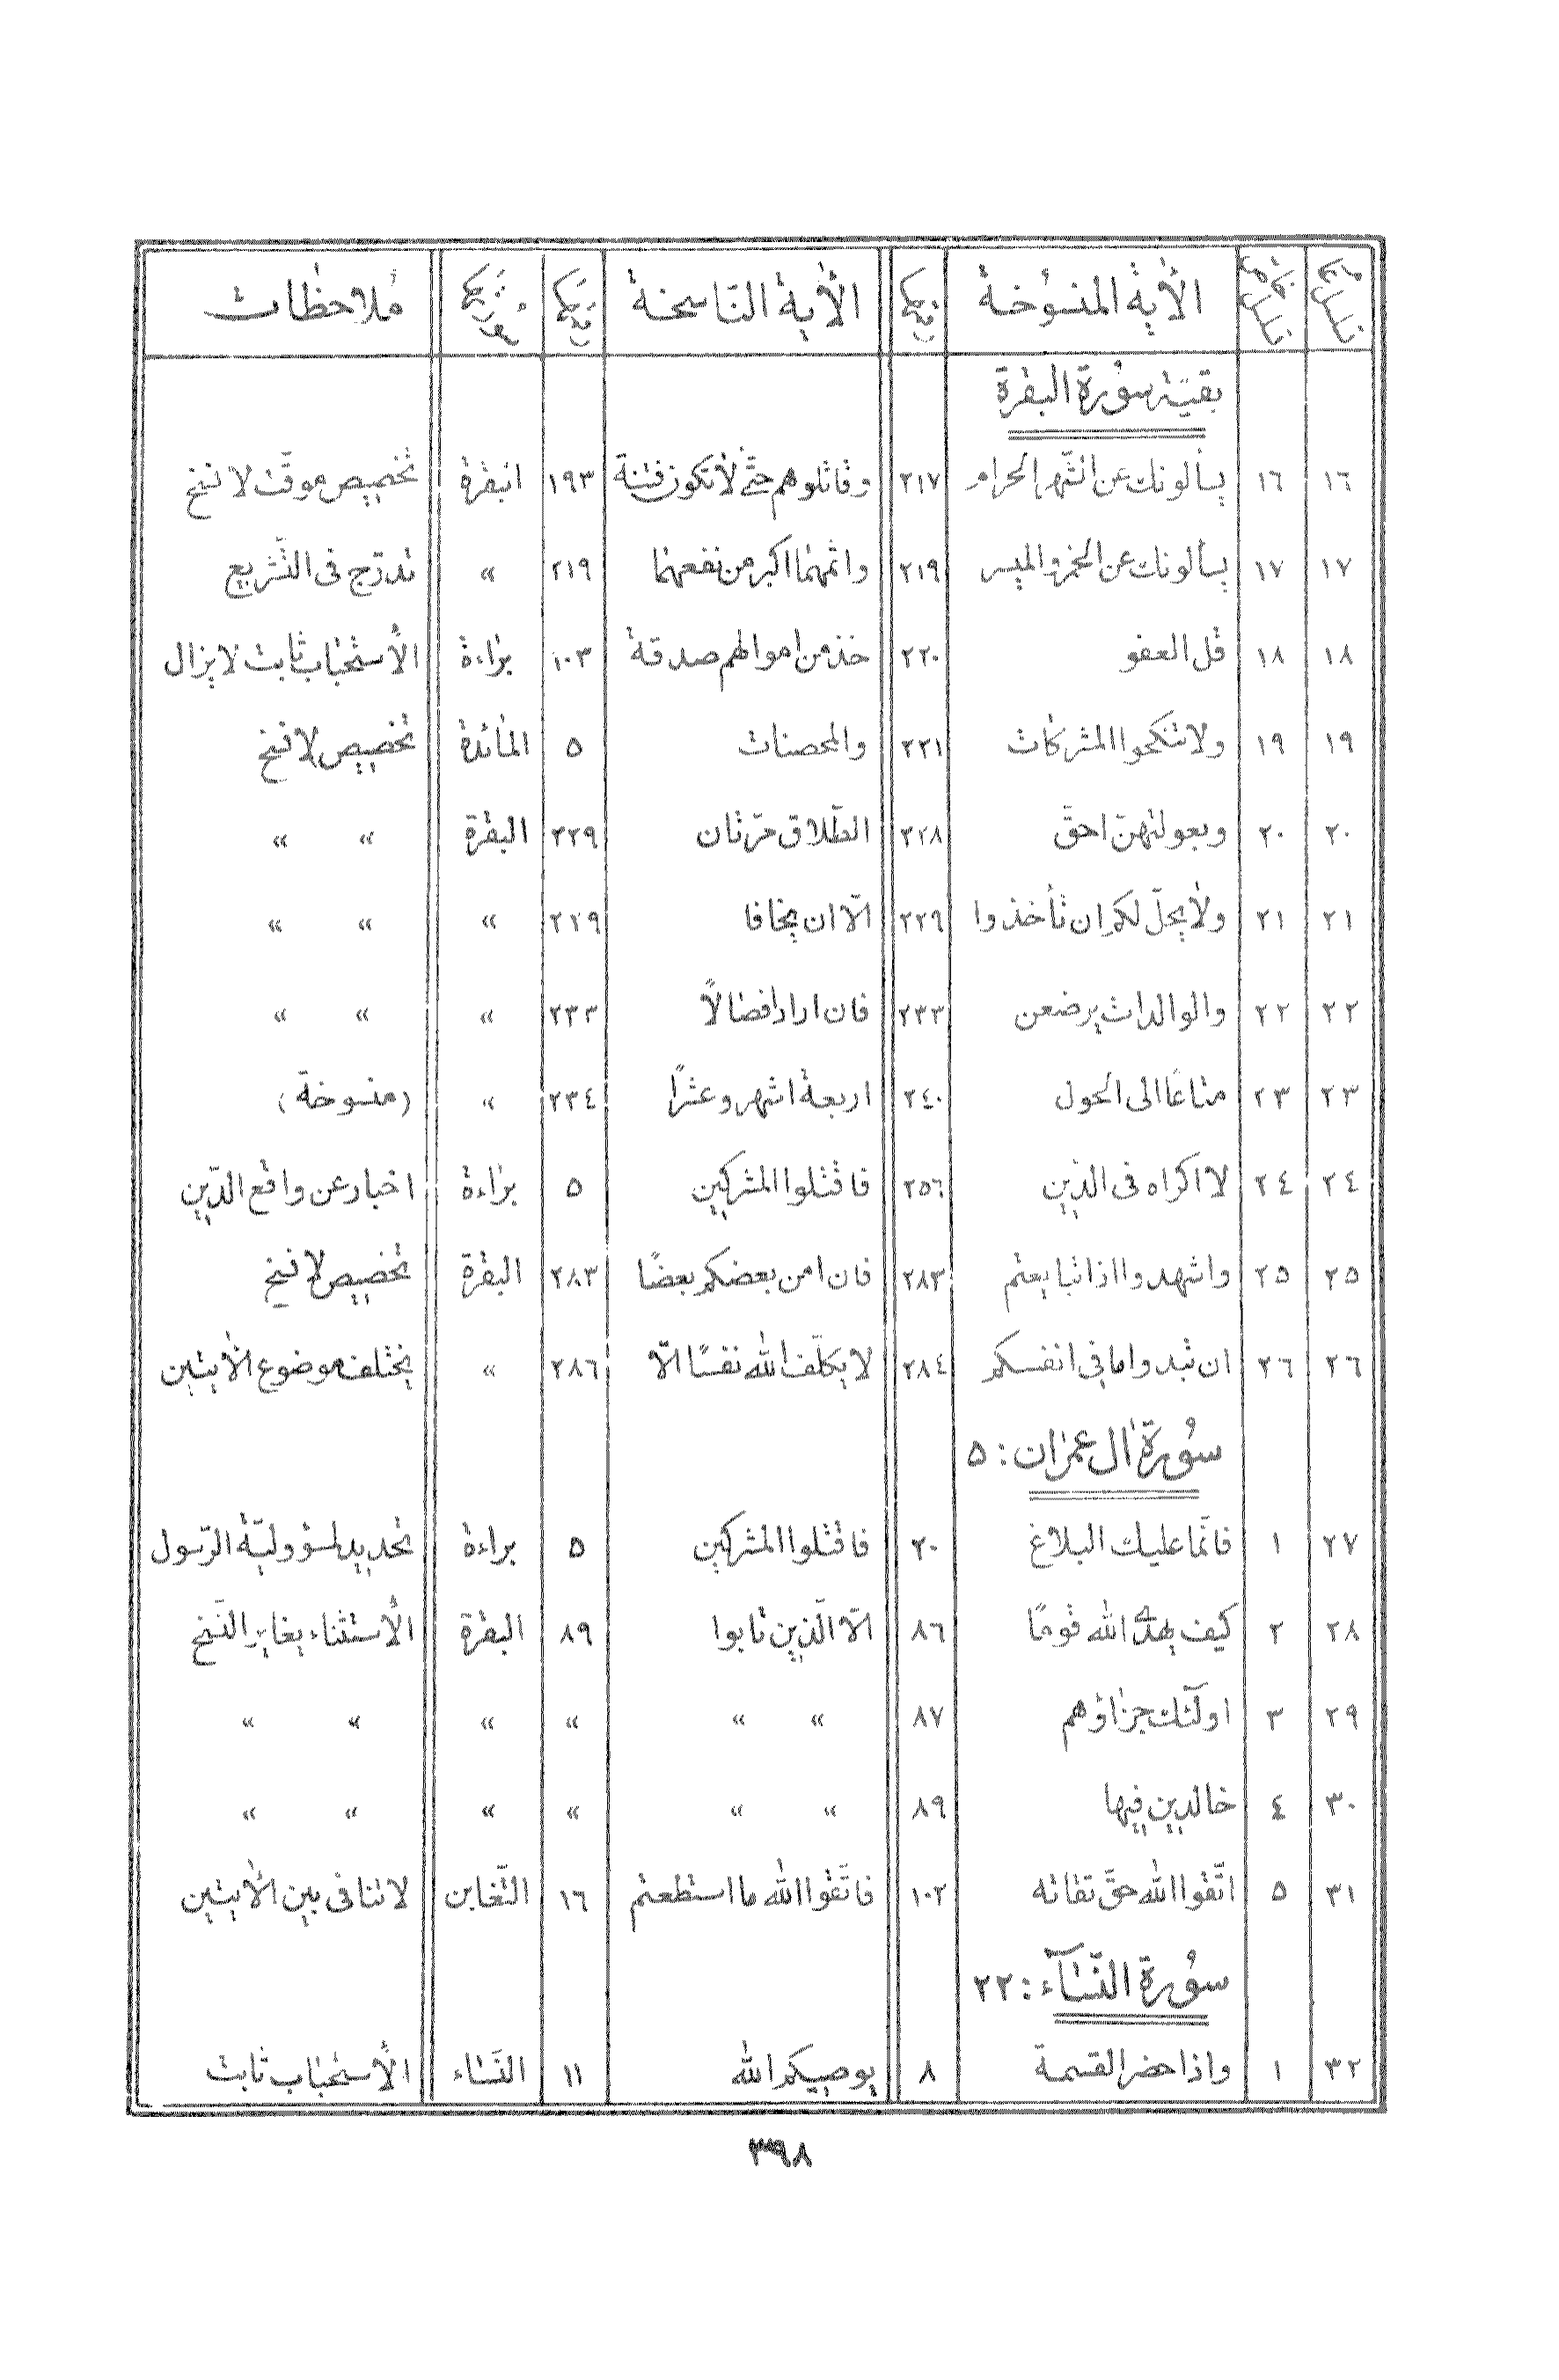 الآية المنسوخة الآية الناسخة ملاحظات
بقيّة سورة البقرة
١٦ ١٦ يسألونك عن الشّهر الحرام ٢١٧ وقاتلوهم حتّى لا تكون فتنة ١٩٣ البقرة تخصيص موقّت لا نسخ
١٧ ١٧ يسألونك عن الخمر والميسر ٢١٩ واثمهما اكبر من نفعهما ٢١٩ » تدرّج فى التّشريع
١٨ ١٨ قل العفو ٢٢٠ خذ من اموالهم صدقة ١٠٣ براءة الأستحباب ثابت لا يزال
١٩ ١٩ ولا تنكحوا المشركات ٢٢١ والمحصنات ٥ المائدة تخصيص لا نسخ
٢٠ ٢٠ وبعولتهنّ احقّ ٢٢٨ الطّلاق مرّتان ٢٢٩ البقرة » »
٢١ ٢١ ولا يحلّ لكم ان تأخذوا ٢٢٩ الّا ان يخافا ٢٢٩ » » »
٢٢ ٢٢ والوالدات يرضعن ٢٣٣ فان ارادا فصالًا ٢٣٣ » » »
٢٣ ٢٣ متاعًا الى الحول ٢٤٠ اربعة اشهر وعشرًا ٢٣٤ » (منسوخة)
٢٤ ٢٤ لا اكراه فى الدّين ٢٥٦ فاقتلوا المشركين ٥ براءة اخبار عن واقع الدّين
٢٥ ٢٥ واشهدوا اذا تبايعتم ٢٨٣ فان امن بعضكم بعضًا ٢٨٣ البقرة تخصيص لا نسخ
٢٦ ٢٦ ان تبدوا ما فى انفسكم ٢٨٤ لا يكلّف الله نفسًا الّا ٢٨٦ » يختلف موضوع الأيتين
سورة آل عمران : ٥
٢٧ ١ فانّما عليك البلاغ ٢٠ فاقتلوا المشركين ٥ براءة تحديد لمسؤوليّة الرّسول
٢٨ ٢ كيف يهدى الله قومًا ٨٦ الّا الّذين تابوا ٨٩ البقرة الأستثناء يغاير النّسخ
٢٩ ٣ اولئك جزاؤهم ٨٧ » » » » » »
٣٠ ٤ خالدين فيها ٨٩ » » » » » »
٣١ ٥ اتّقوا الله حقّ تقاته ١٠٢ فاتّقوا الله ما استطعتم ١٦ التّغابن لا تنافى بين الأيتين
سورة النّسآء : ٢٢
٣٢ ١ واذا حضر القسمة ٨ يوصيكم الله ١١ النّساء الأستحباب ثابت
٣٩٨